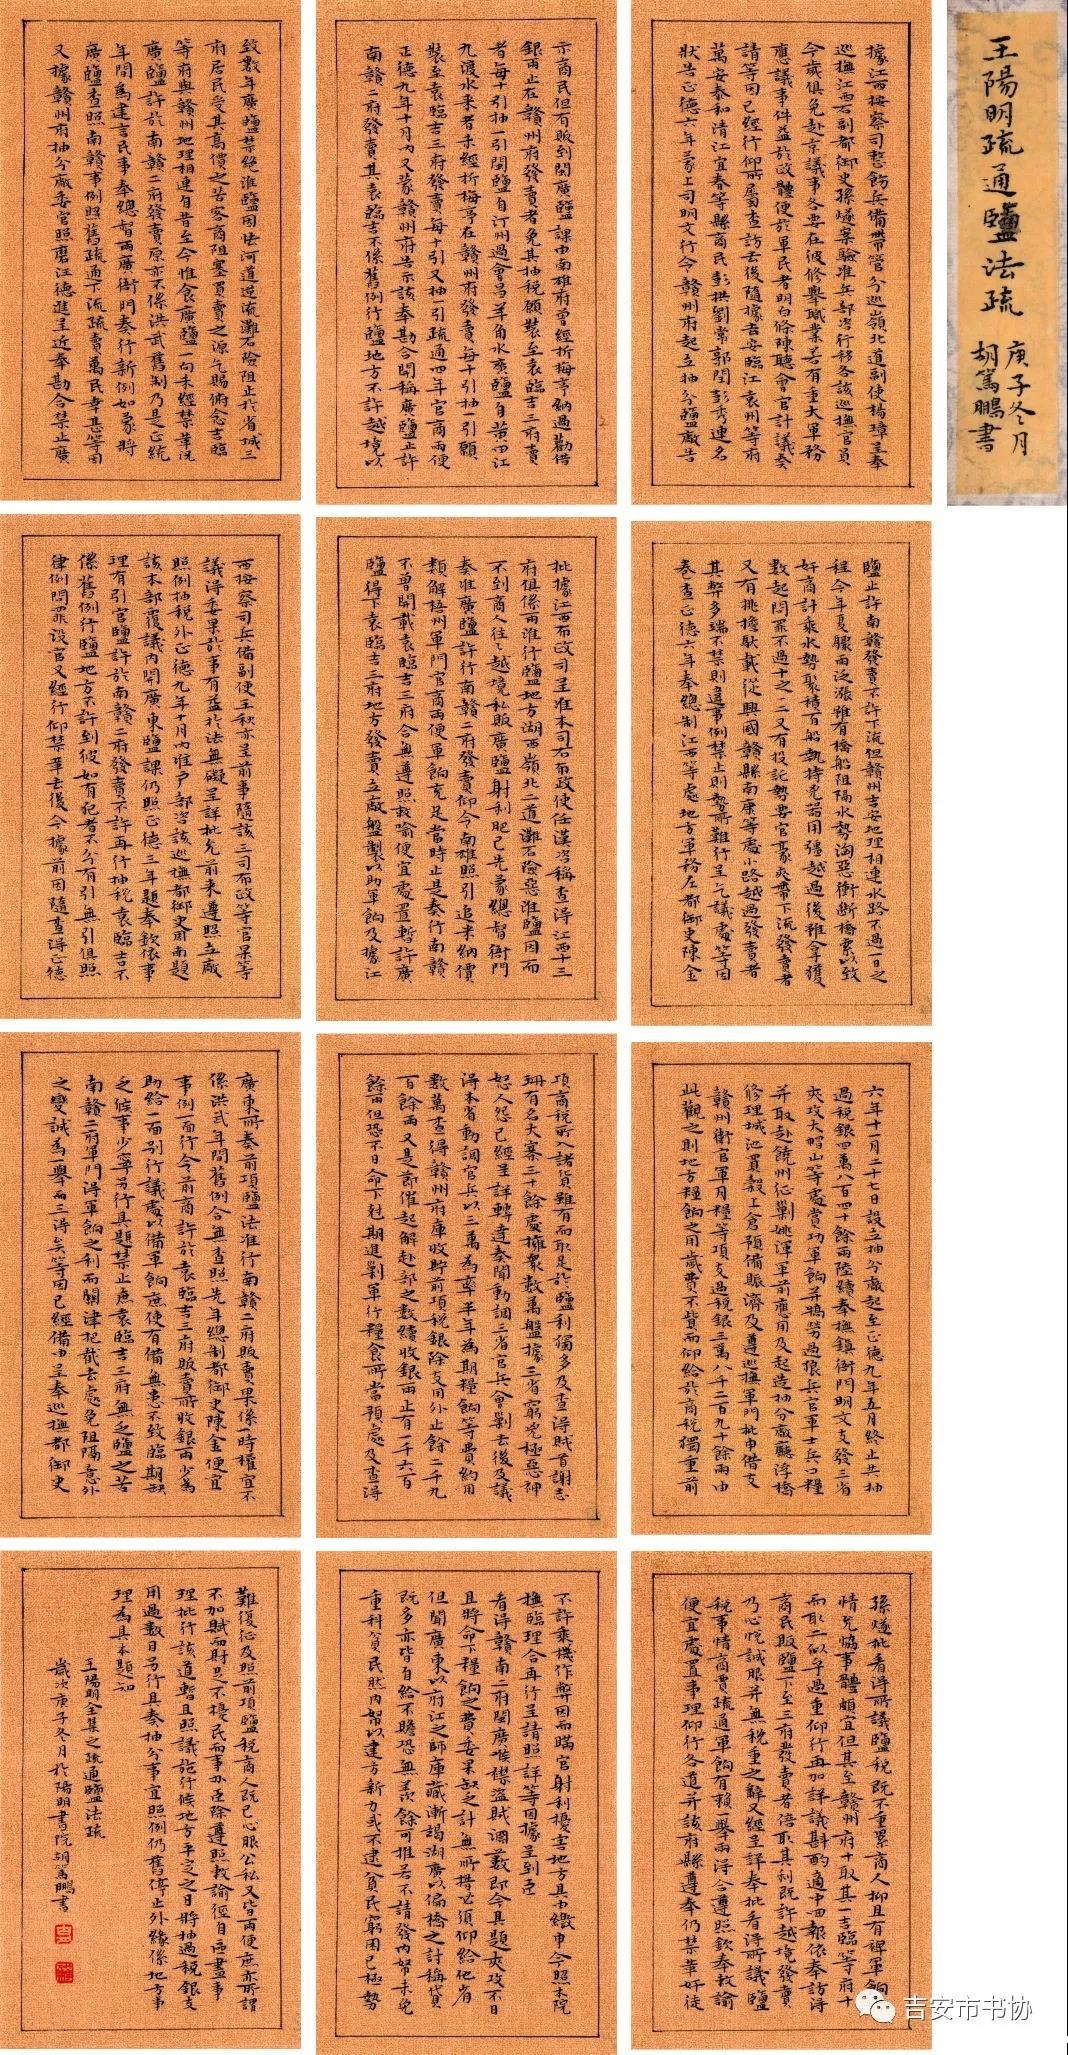 王陽明疏通鹽法疏
庚子冬月
胡篤鵬書
據江西按察司整飭兵備帶管分巡嶺北道副使楊璋呈奉
巡撫江西右副都御史孫燧案驗准兵部咨行移各該巡撫官員
今歲俱免赴京議事各要在彼修舉職業若有重大軍務
應議事件益於政體便於軍民者明白條陳聽會官計議奏
請等因已經行仰所屬查訪去後隨據吉安臨江袁州等府
萬安泰和清江宜春等縣商民彭拱劉常郭閏彭秀連名
狀告正德六年蒙上司明文行令贛州府起立抽分鹽廠告
示商民但有販到閩廣鹽課由南雄府曾經折梅亭納過勸借
銀兩止在贛州府發賣者免其抽稅願裝至袁臨吉三府賣
者每十引抽一引閩鹽自汀州過會昌羊角水廣鹽自黃田江
九渡水來者未經折梅亭在贛州府發賣每十引抽一引願
裝至袁臨吉三府發賣每十引又抽一引疏通四年官商兩便
正德九年十月內又蒙贛州府告示該奉勘合開稱廣鹽止許
南贛二府發賣其袁臨吉不係舊例行鹽地方不許越境以
致數年廣鹽禁絕淮鹽因怯河道逆流灘石險阻止於省城三
府居民受其高價之苦客商阻塞買賣之源乞賜俯念吉臨
等府與贛州地理相連自昔至今惟食廣鹽一向未經禁革況
廣鹽許於南贛二府發賣原亦不係洪武舊制乃是正統
年間為建言民事奉總督兩廣衙門奏行新例如蒙將
廣鹽查照南贛事例照舊疏通下流疏賣萬民幸甚等因
又據贛州府抽分廠委官照磨汪德進呈近奉勘合禁止廣
鹽止許南贛發賣不許下流但贛州吉安地理相連水路不過一日之
程今年夏驟雨泛漲雖有橋船阻隔水勢洶惡衝斷橋索以致
奸商計乘水勢聚積百船執持兇器用彊越過後雖拿獲
數起問罪不過十之一二又有投託勢要官豪夾帶下流發賣者
又有挑擔馱載從興國贛縣南康等處小路越過發賣者
其弊多端不禁則違事例禁止則勢所難行呈乞議處等因
卷查正德六年奉總制江西等處地方軍務左都御史陳金
批據江西布政司呈准本司右布政使任漢咨稱查得江西十三
府俱係兩淮行鹽地方湖西嶺北二道灘石險惡淮鹽因而
不到商人往々越境私販廣鹽射利肥己先蒙總督衙門
奏准廣鹽許行南贛二府發賣仰令南雄照引追米納價
類解梧州軍門官商兩便軍餉充足當時止是奏行南贛
不曾開載袁臨吉三府合無遵照敕諭便宜處置暫許廣
鹽得下袁臨吉三府地方發賣立廠盤製以助軍餉及據江
西按察司兵備副使王秩亦呈前事隨該三司布政等官呈等
議得委果於事有益於法無礙呈詳批允前來遵照立廠
照例抽稅外正德九年十月內准戶部咨該巡撫都御史周南題
該本部覆議內開廣東鹽課仍照正德三年題奉欽依事
理有引官鹽許於南贛二府發賣不許再行抽稅袁臨吉不
係舊例行鹽地方不許到彼如有犯者不分有引無引俱照
律例問罪設官又經行仰禁革去後今據前因隨查得正德
六年十一月二十七日設立抽分廠起至正德九年五月終止共抽
過稅銀四萬八百四十餘兩陸續奉撫鎮衙門明文支發三省
夾攻大帽山等處賞功軍餉并犒勞過狼兵官軍士兵口糧
并取赴饒州征剿姚源軍前應用及起造抽分廠廳浮橋
修理城池買穀上倉預備賑濟及遵巡撫軍門批申借支
贛州衛官軍月糧等項支過稅銀三萬八千二百九十餘兩由
此觀之則地方糧餉之用歲費不貲而仰給於商稅獨重前
項商稅所入諸貨雖有而取足於鹽利獨多及查得賊首謝志
珊有名大寨三十餘處擁衆數萬盤據三省窮兇極惡神
怒人怨已經呈詳轉達奏聞動調三省官兵會剿去後及議
得本省動調官兵以三萬為率半年為期糧餉等費約用
數萬查得贛州府庫收貯前項稅銀除支用外止餘二千九
百餘兩又是節催起解赴部之數續收銀兩止有一千六百
餘兩但恐不日命下剋期進剿軍行糧食所當預處及查得
廣東所奏前項鹽法准行南贛二府販賣果係一時權宜不
係洪武年間舊例合無查照先年總制都御史陳金便宜
事例一面行令前商許於袁臨吉三府販賣所收銀兩少為
助給一面別行議處以備軍餉庶使有備無患不致臨期缺
乏候事少寧另行具題禁止庶袁臨吉三府無乏鹽之苦
南贛二府軍門得軍餉之利而關津把截去處免阻隔意外
之變誠為一舉而三得矣等因已經備由呈奉巡撫都御史
孫燧批看得所議鹽稅既不重累商人抑且有裨軍餉
情允協事體頗宜但其至贛州府十取其一吉臨等府十
而取二似乎過重仰行再加詳議斟酌適中回報依奉訪得
商民販鹽下至三府發賣者倍取其利既許越境發賣
乃心悅誠服并無稅重之辭又經呈詳奉批看得所議鹽
稅事情商賈疏通軍餉有賴一舉兩得合遵照欽奉敕諭
便宜處置事理仰行各道并該府縣遵奉仍禁革奸徒
不許乘機作弊因而瞞官射利擾害地方具由繳申今照本院
撫臨理合再行呈請照詳等因據呈到臣
看得贛南二府閩廣喉襟盜賊淵藪即今具題夾攻不日
且將命下糧餉之費委果缺乏計無所措必須仰給他省
但聞廣東以府江之師庫藏漸竭湖廣以偏橋之討稱貸
既多亦皆自給不贍恐無羨餘可推若不請發內帑未免
重科貧民然內帑以建方新力或不逮貧民窮困已極勢
難復征及照前項鹽稅商人既已心服公私又皆兩便庶亦所謂
不加賦而財足不擾民而事辦臣除遵照敕諭徑自區畫事
理批行該道暫且照議施行候地方平定之日將抽過稅銀支
用過數目另行具奏抽分事宜照例仍舊停止外緣係地方事
理為具本題知
王陽明全集之疏通鹽法疏
歲次庚子冬月於陽明書院胡篤鵬書
吉安市书协